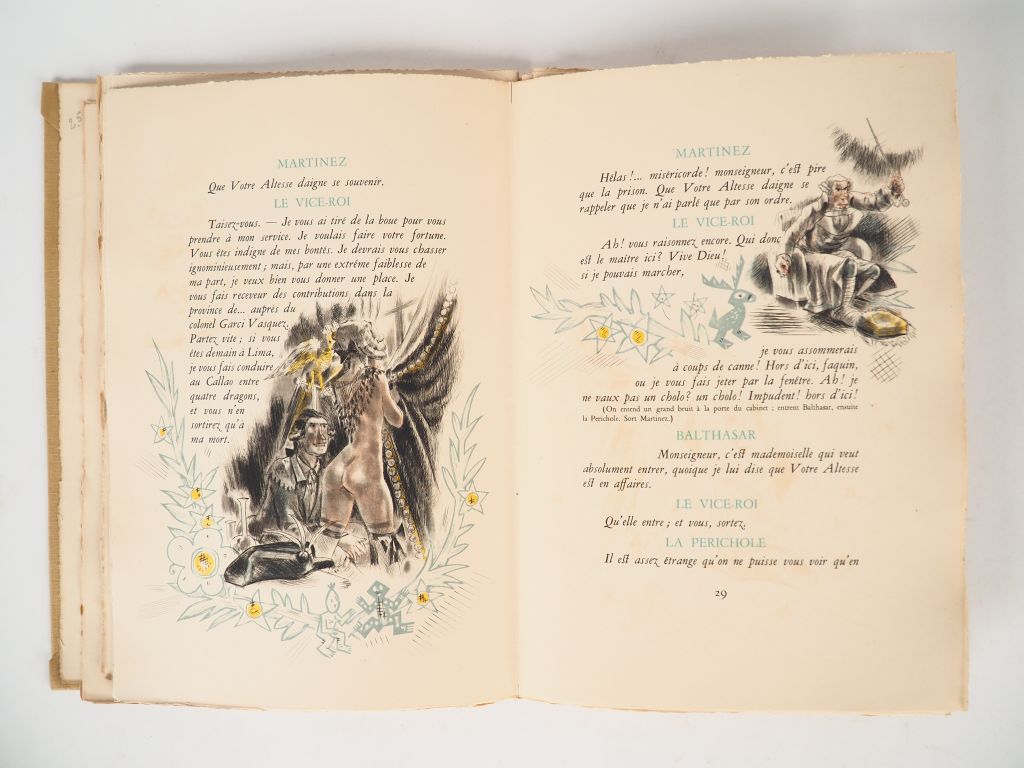 MARTINEZ
Que Votre Altesse daigne se souvenir.
LE VICE-ROI
Taisez-vous. — Je vous ai tiré de la boue pour vous
prendre à mon service. Je voulais faire votre fortune.
Vous êtes indigne de mes bontés. Je devrais vous chasser
ignominieusement ; mais, par une extrême faiblesse de
ma part, je veux bien vous donner une place. Je
vous fais receveur des contributions dans la
province de... auprès du
colonel Garci Vasquez.
Partez vite ; si vous
êtes demain à Lima,
je vous fais conduire
au Callao entre
quatre dragons,
et vous n'en
sortirez qu'à
ma mort.
MARTINEZ
Hélas !... miséricorde ! monseigneur, c'est pire
que la prison. Que Votre Altesse daigne se
rappeler que je n'ai parlé que par son ordre.
LE VICE-ROI
Ah ! vous raisonnez encore. Qui donc
est le maître ici ? Vive Dieu !
si je pouvais marcher,
je vous assommerais
à coups de canne ! Hors d'ici, faquin,
ou je vous fais jeter par la fenêtre. Ah ! je
ne vaux pas un cholo ? un cholo ! Impudent ! hors d'ici !
(On entend un grand bruit à la porte du cabinet ; entrent Balthasar, ensuite
la Perichole. Sort Martinez.)
BALTHASAR
Monseigneur, c'est mademoiselle qui veut
absolument entrer, quoique je lui dise que Votre Altesse
est en affaires.
LE VICE-ROI
Qu'elle entre ; et vous, sortez.
LA PERICHOLE
Il est assez étrange qu'on ne puisse vous voir qu'en
29